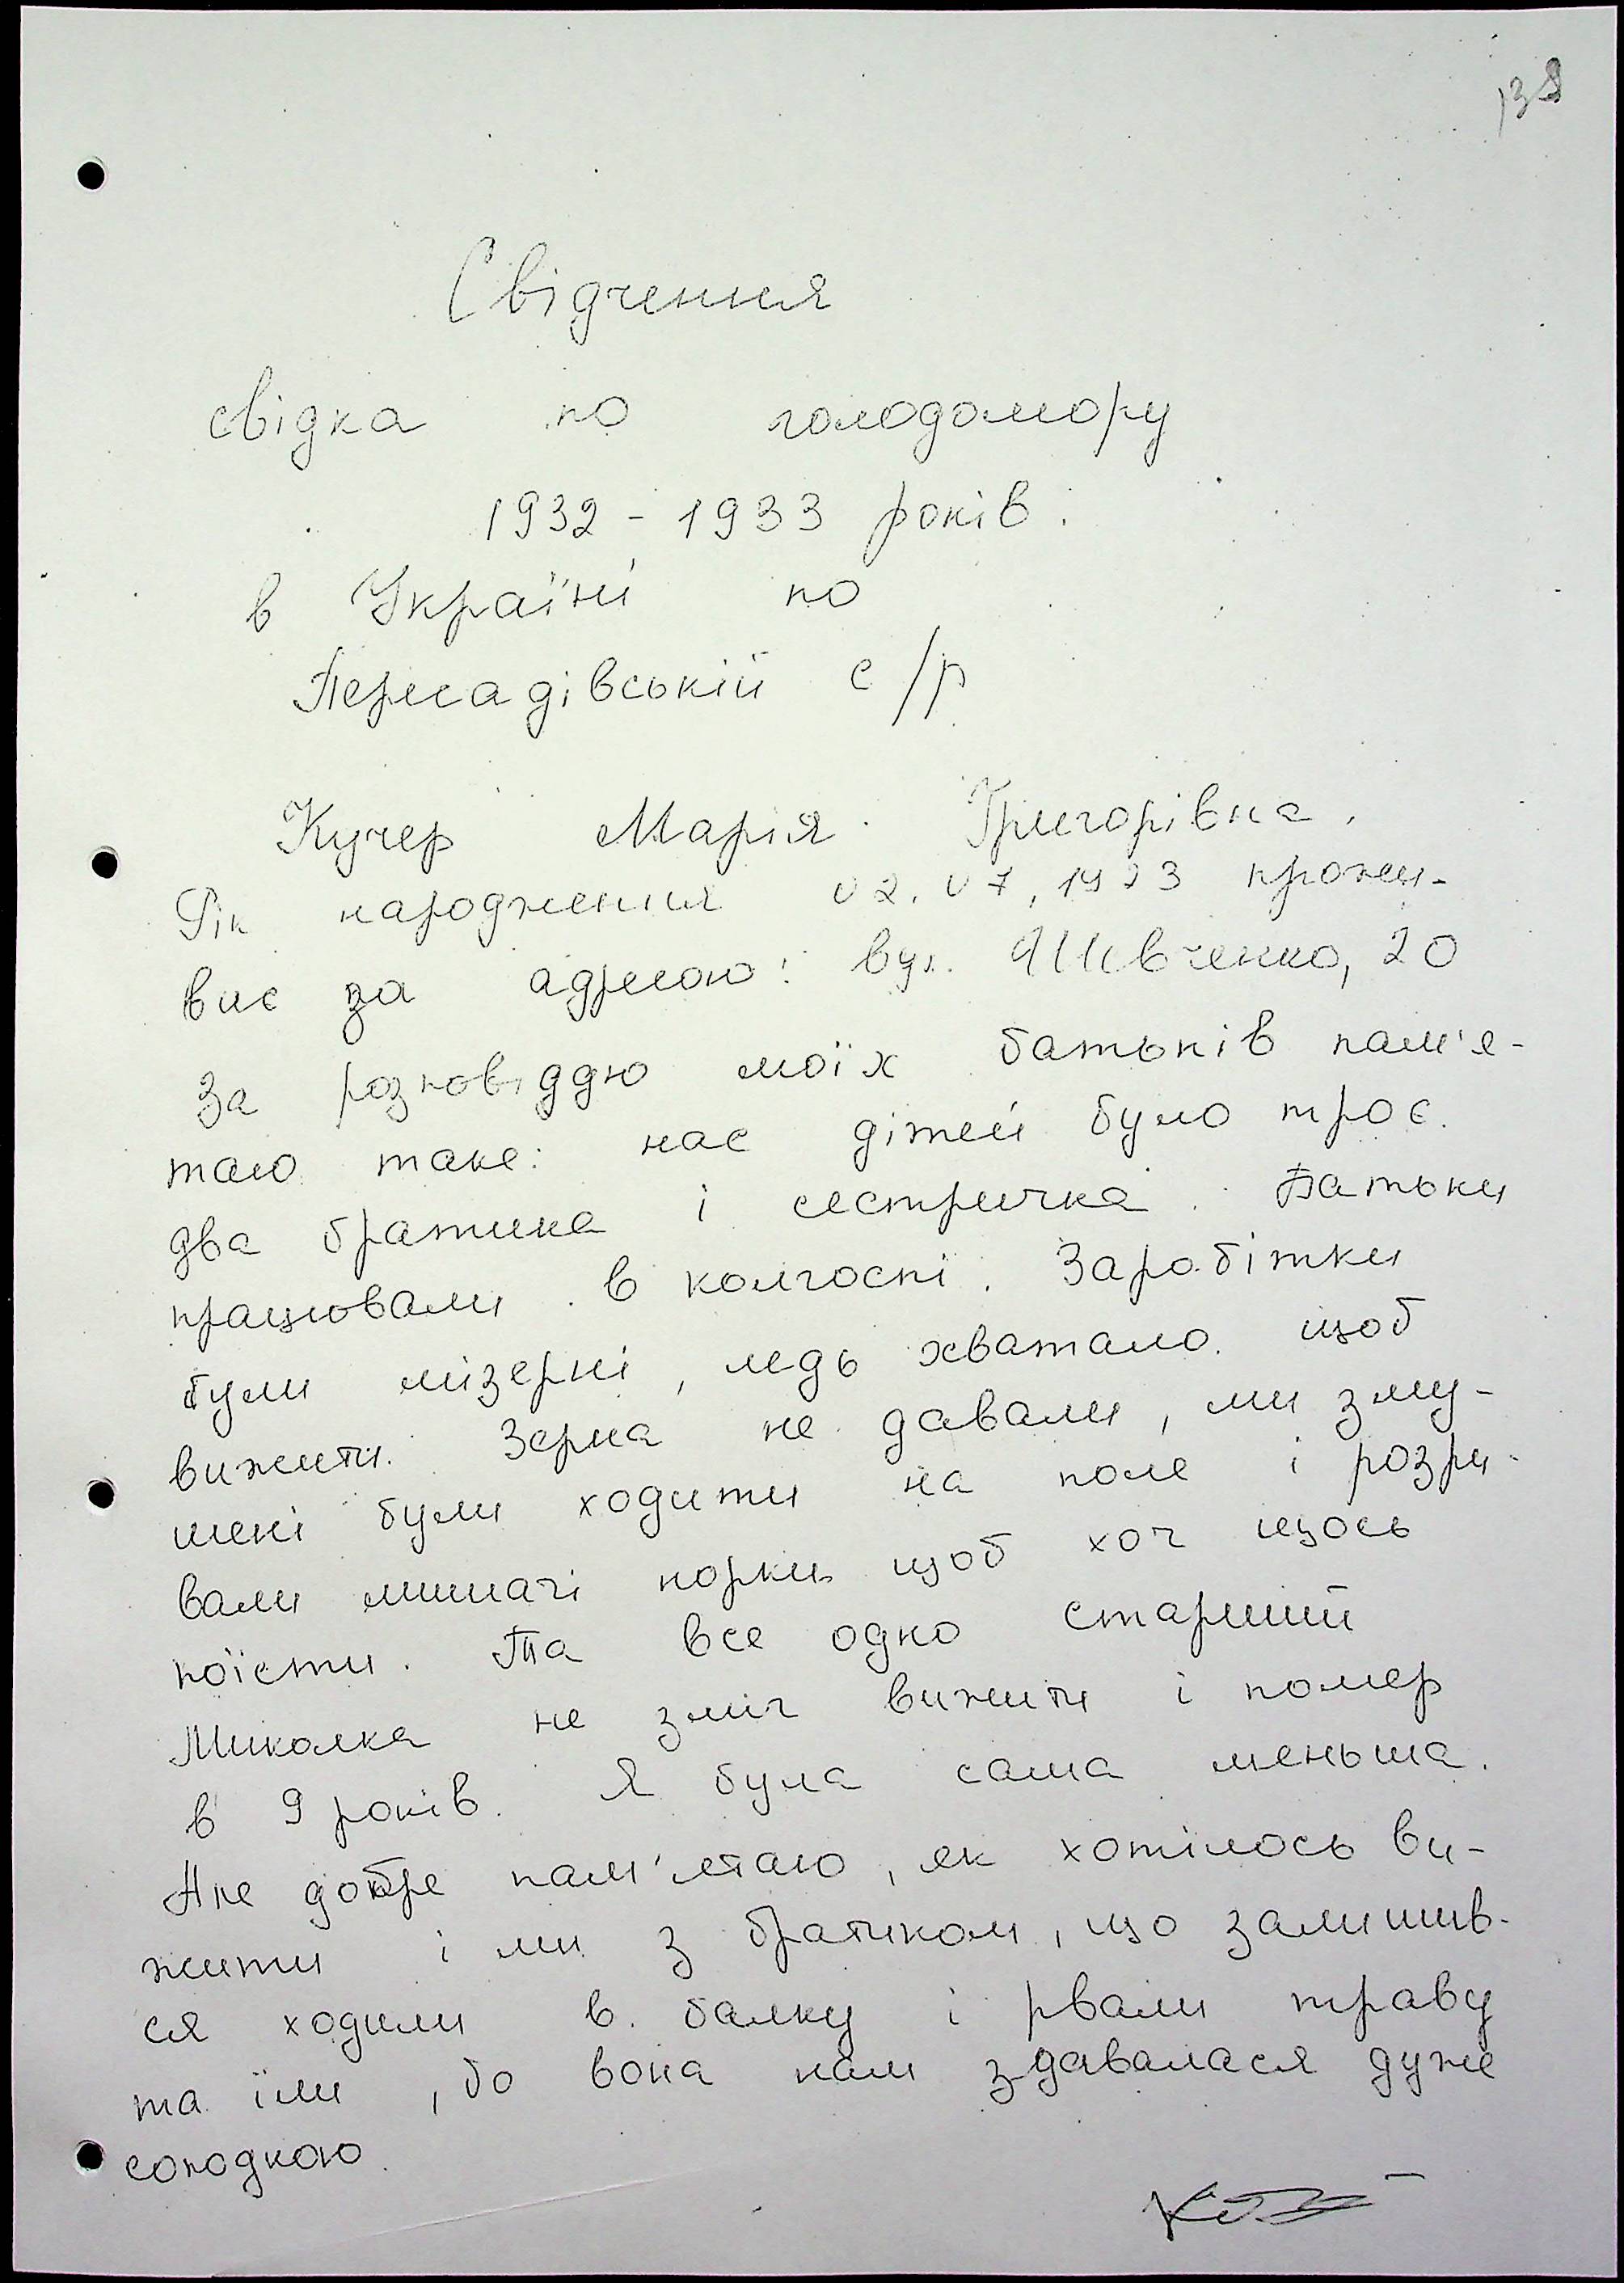 138
Свідчення
свідка по голодомору
1932 - 1933 років.
в Україні по
Пересадівській с/р
Кучер Марія Григорівна.
Рік народження 02.07.1923 прожи-
ває за адресою: вул. Шевченко, 20
За розповіддю моїх батьків пам'я-
таю таке: нас дітей було троє.
два братика і сестричка. Батьки
працювали в колгоспі. Заробітки
були мізерні, ледь хватало щоб
вижити. Зерна не давали, ми зму-
шені були ходити на поле і розри-
вали мишачі норки щоб хоч щось
поїсти. Та все одно старший
Миколка не зміг вижити і помер
в 9 років. Я була сама меньша.
Але добре пам'ятаю, як хотілось ви-
жити і ми з братиком, що залишив-
ся ходили в балку і рвали траву
та їли, бо вона нам здавалася дуже
солодкою.